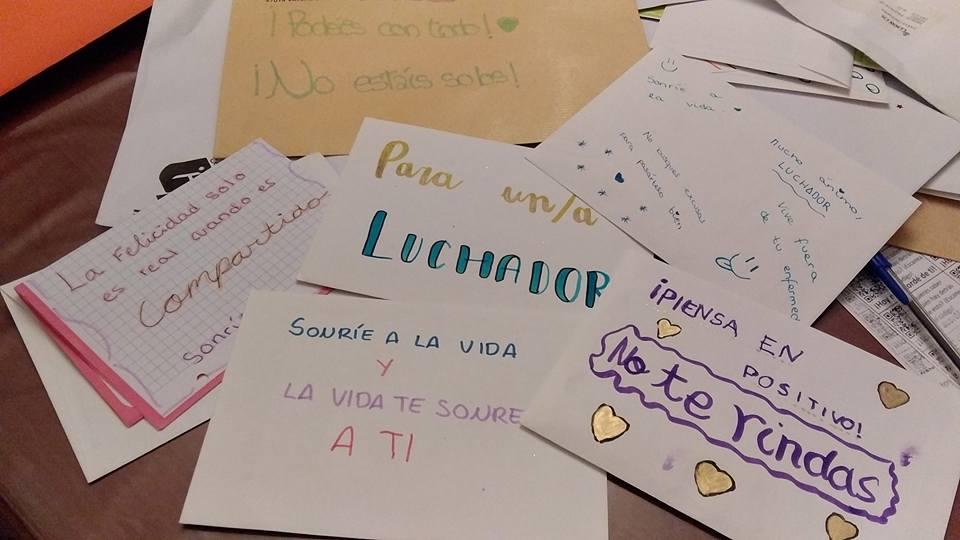 ¡Podéis con todo!
¡No estáis solos!
Sonríe a
la vida
No busques excusas
para pasártelo bien
mucho ánimo,
LUCHADOR
Vive fuera
de tu enfermed
Para un/a
LUCHADOR
La Felicidad solo
es real cuando es
Compartida
Sonrí
SONRÍE A LA VIDA
Y
LA VIDA TE SONRE
A TI
¡PIENSA EN
POSITIVO!
No te rindas